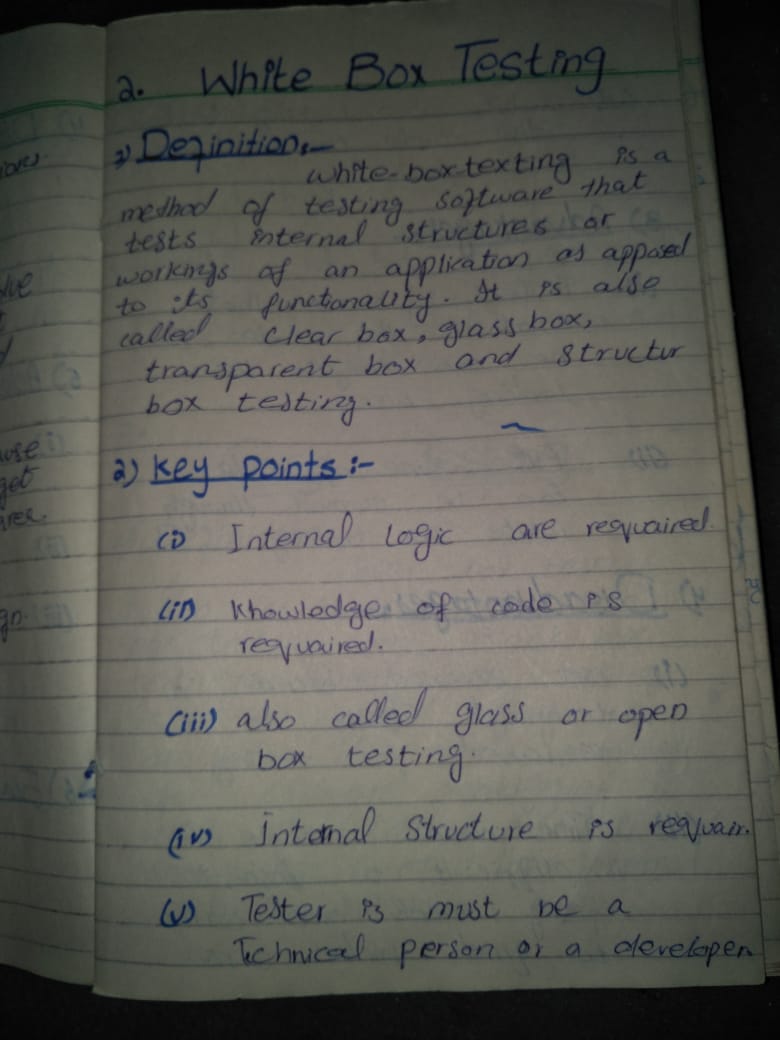 2. White Box Testing
1) Definition:-
white-box texting is a
method of testing software that
tests internal structures or
workings of an application as apposed
to its functionality. It is also
called clear box, glass box,
transparent box and structur
box testing.
2) key points :-
(i) Internal Logic are requaired.
(ii) Knowledge of code is
requaired.
(iii) also called glass or open
box testing.
(iv) internal Structure is requair.
(v) Tester is must be a
Technical person or a developer